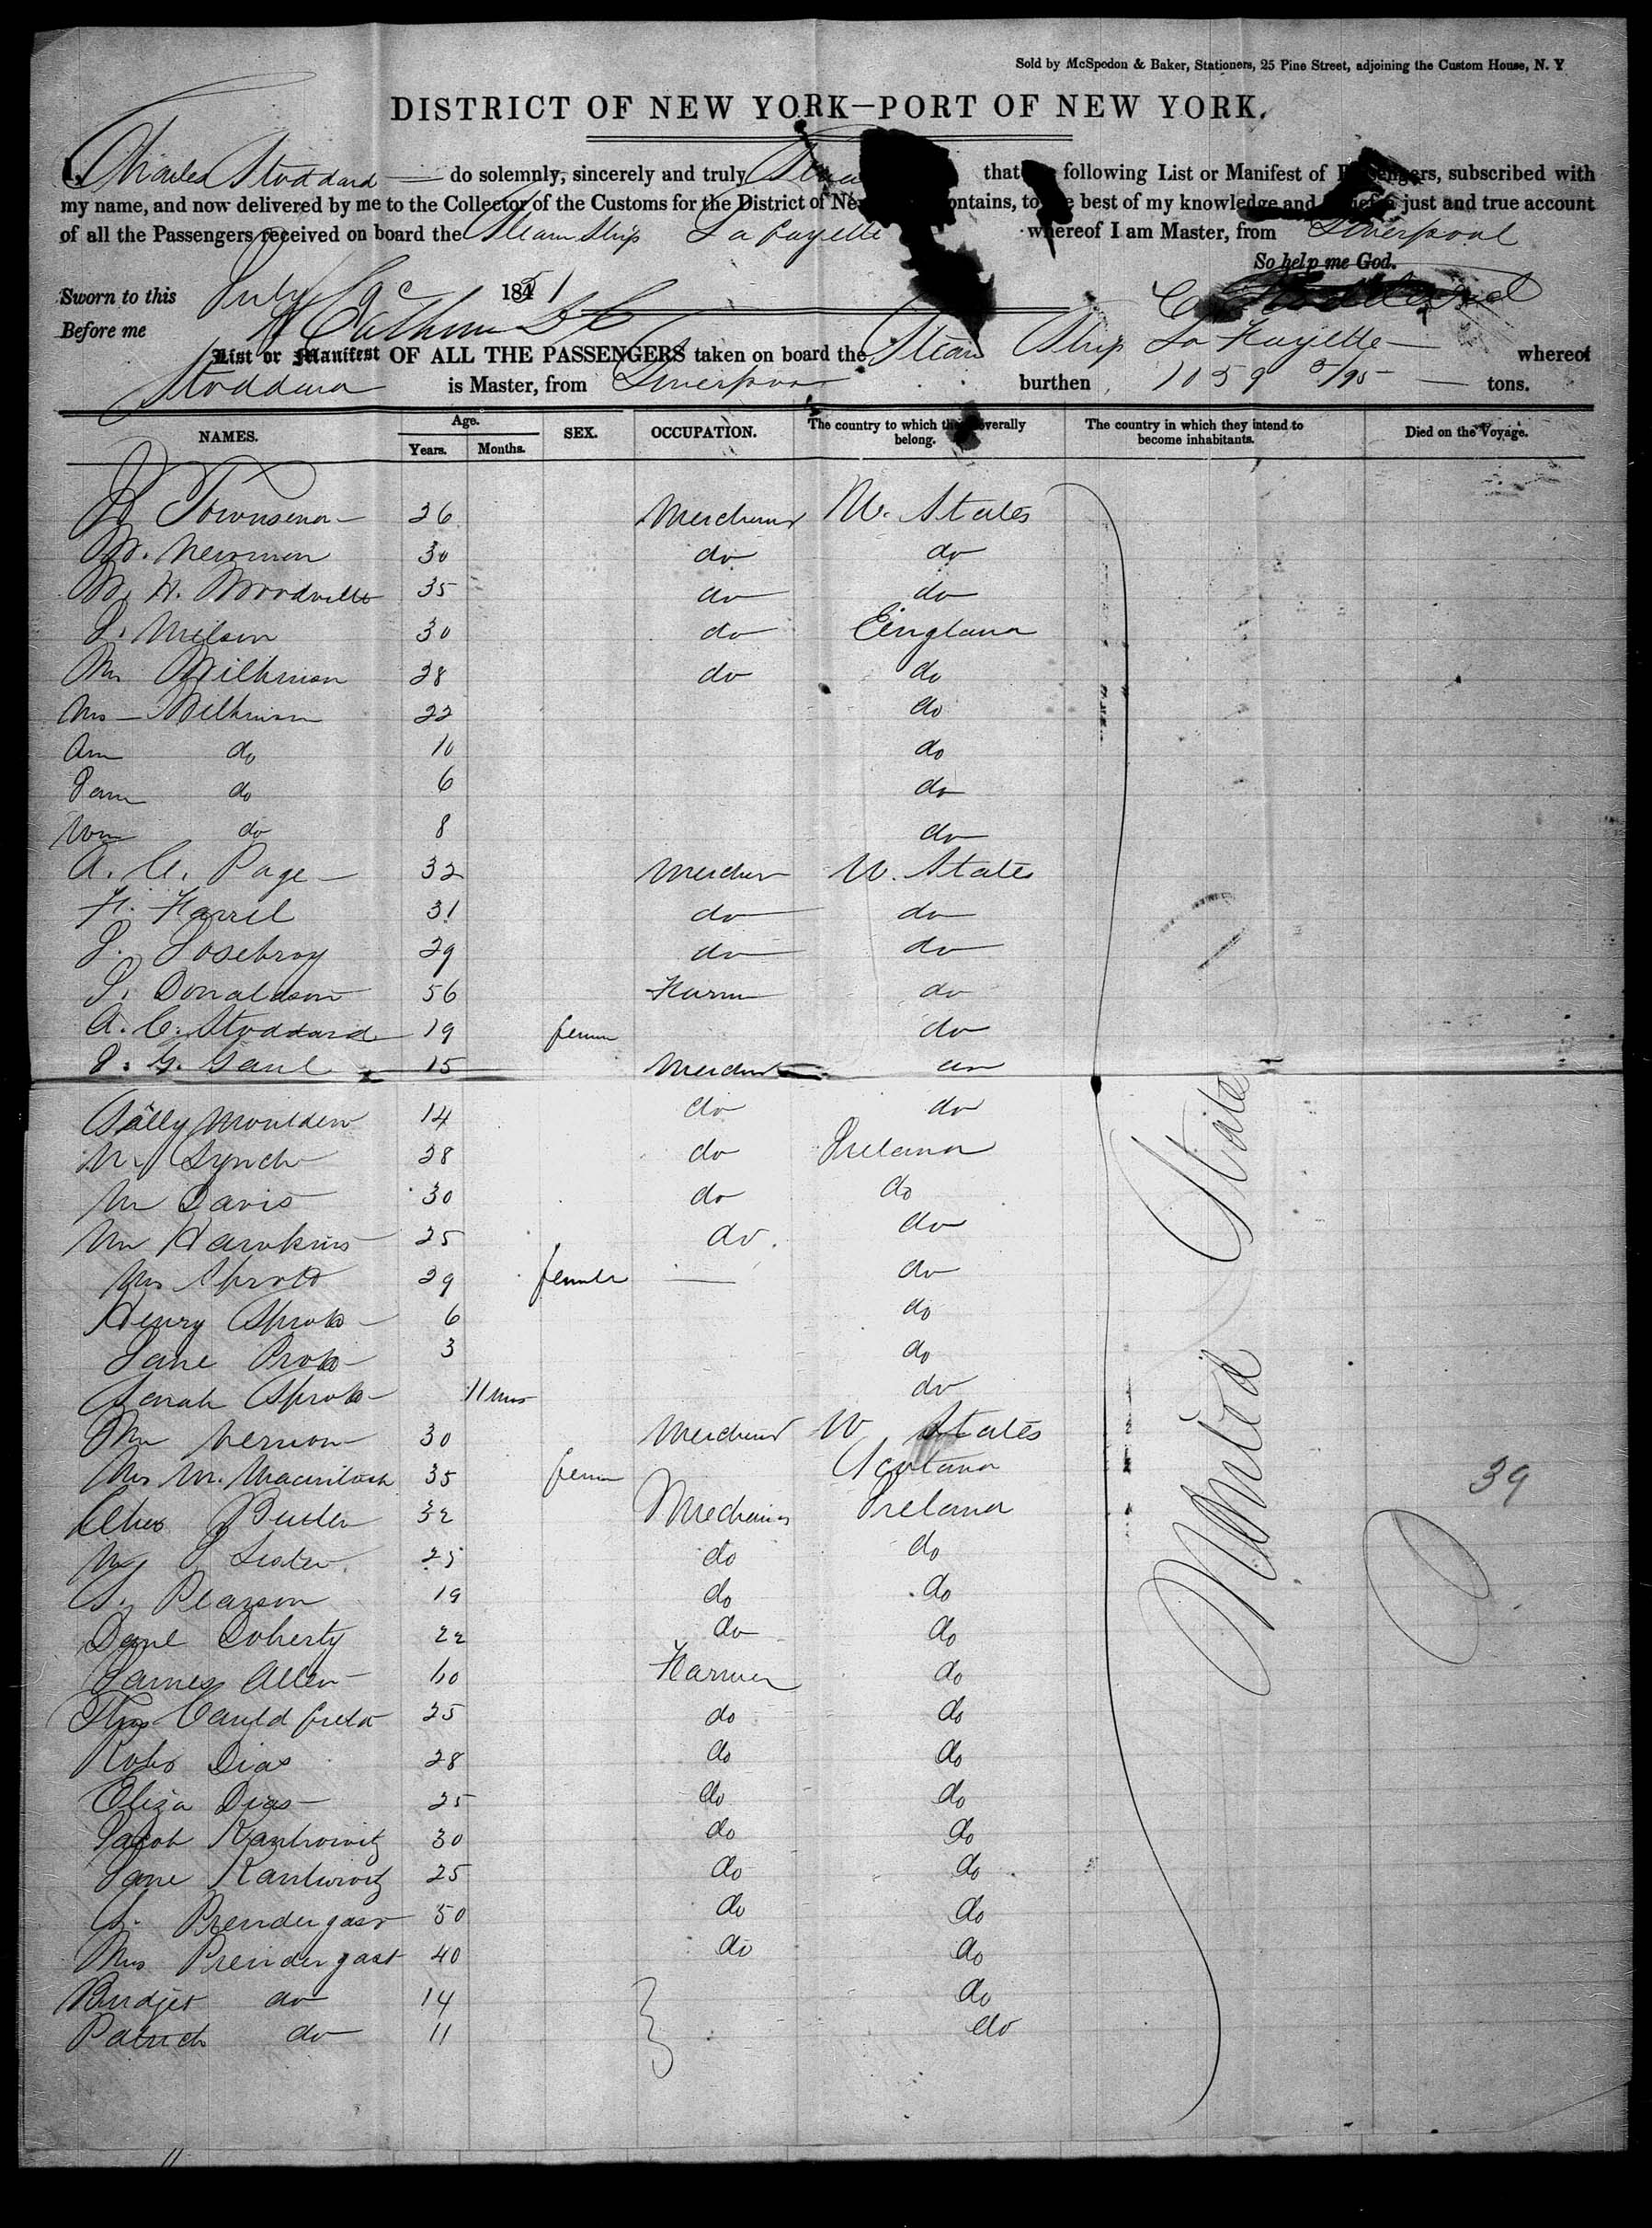 Sold by McSpedon & Baker, Stationers, 25 Pine Street, adjoining the Custom House, N. Y
DISTRICT OF NEW YORK—PORT OF NEW YORK.
I, Charles Stoddard do solemnly, sincerely and truly that following List or Manifest of Passengers, subscribed with
my name, and now delivered by me to the Collector of the Customs for the District of New contains, to the best of my knowledge and belief a just and true account
of all the Passengers received on board the Steam Ship La Fayette whereof I am Master, from Liverpool
So help me God.
Sworn to this July 1851
Before me
List or Manifest OF ALL THE PASSENGERS taken on board the Steam Ship La Fayette whereof
Stoddard is Master, from Liverpool burthen 1059 5/95 tons.
NAMES. Age. Years. Months. SEX. OCCUPATION. The country to which they severally belong. The country in which they intend to become inhabitants. Died on the Voyage.
Townsend 26 Merchant U. States
W. Newman 30 do do
W. H. Woodville 35 do do
30 do England
Mr Wilkinson 38 do do
Mrs Wilkinson 22 do
Ann do 10 do
do 6 do
Wm do 8 do
A. C. Page 32 Merchan U. States
F. Farrel 31 do do
29 do do
Donaldson 56 Farm do
A. C. Stoddard 19 fem do
15 Merchant do
Sally Moulden 14 do do
Lynch 28 do Ireland
Mr Davis 30 do do
Mr Hawkins 25 do do
Mrs Sprott 29 female — do
Henry Sprott 6 do
Jane Prott 3 do
Sarah Sprott 11 mos do
Mr Vernon 30 Merchant U States
Mrs M. Macintosh 35 fem Scotland
Butler 32 Mechanic Ireland
25 do do
S. Pearson 19 do do
Danl Doherty 22 do do
James Allen 60 Farmer do
Thos Cauldfield 25 do do
Robt Dias 28 do do
Eliza Dias 25 do do
Jacob Kantrowitz 30 do do
Jane Kantrowitz 25 do do
Prendergast 50 do do
Mrs Prendergast 40 do do
Bridget do 14 do
Patrick do 11 do
United States
39